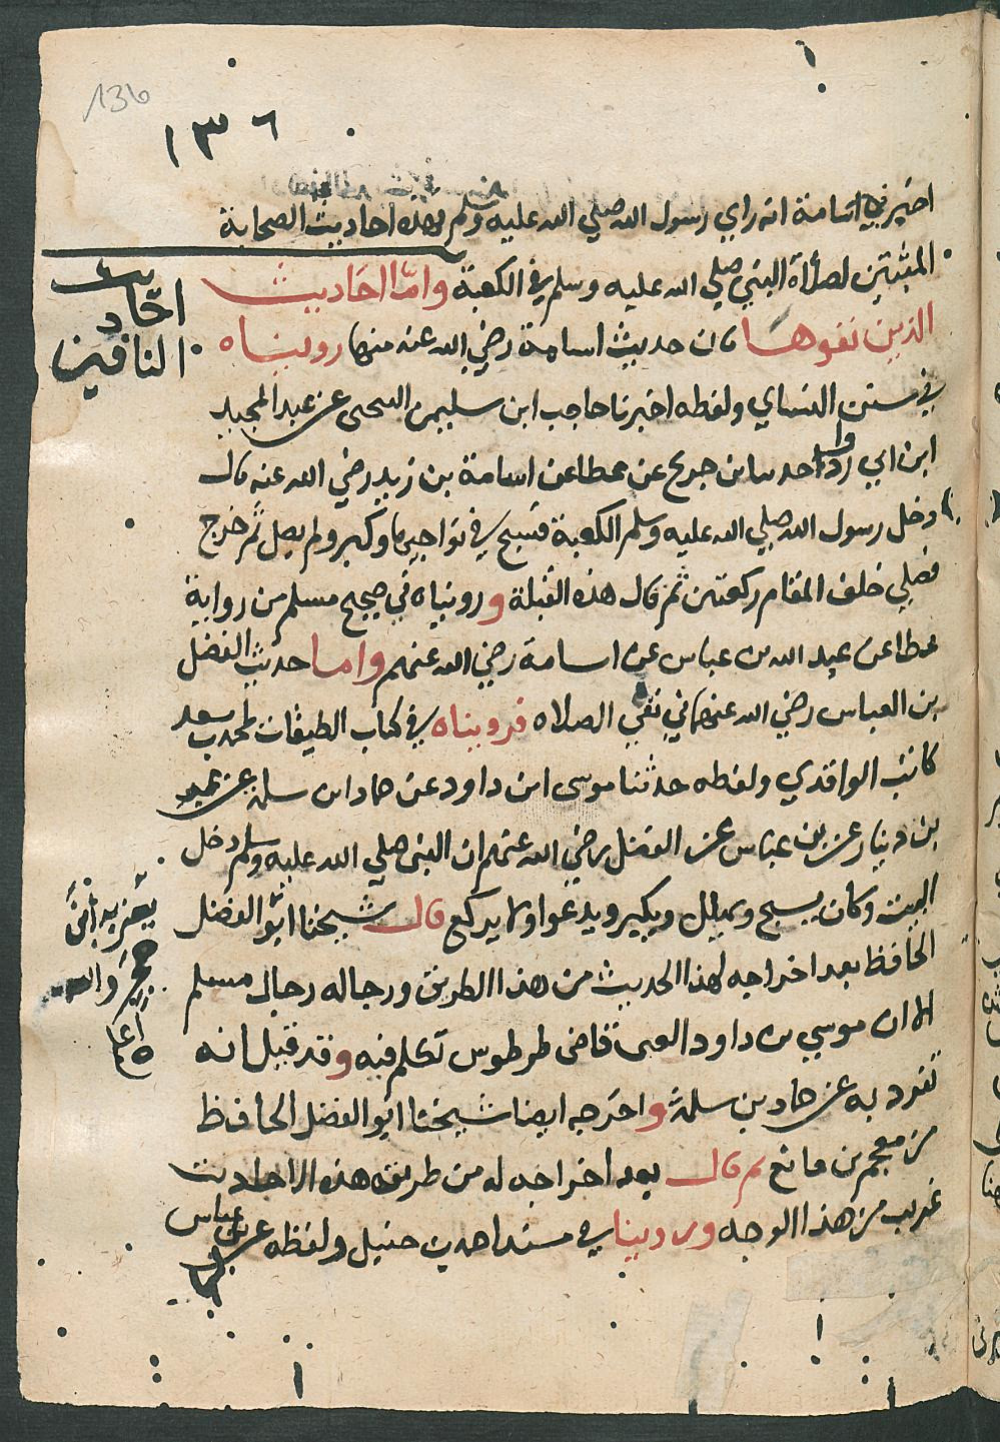 136
١٣٦
اخبرني اسامة انه راي رسول الله صلي الله عليه وسلم وهذه احاديث الصحابة
المثبتين لصلاة النبي صلي الله عليه وسلم في الكعبة واما احاديث
احاديث
النافين
الذين نفوها فان حديث اسامة رضي الله عنه منها رويناه
في سنن النساي ولفظه اخبرنا حاجب ابن سليمن المنبجى عن عبد المجيد
ابن ابي رواد حدثنا بن جريح عن عطا عن اسامة بن زيد رضي الله عنه قال
دخل رسول الله صلي الله عليه وسلم الكعبة فسبح في نواحيها وكبر ولم يصل ثم خرج
فصلي خلف المقام ركعتين ثم قال هذه القبلة وروبناه في صحيح مسلم من رواية
عطا عن عبد الله بن عباس عن اسامة رضي الله عنهم واما حديث الفضل
بن العباس رضي الله عنهما في نفي الصلاه فرويناه في كتاب الطبقات لمحمد بن سعد
كاتب الواقدي ولفظه حدثنا موسى ابن داود عن حماد ابن سلمة عن عمرو
بن دينار عن بن عباس عن الفضل رضي الله عنهم ان النبي صلي الله عليه وسلم دخل
البيت وكان يسبح ويهلل ويكبر ويدعوا ولا يركع قال شيخنا ابو الفضل
الحافظ بعد اخراجه لهذا الحديث من هذا الطريق ورجاله رجال مسلم
حجر والله
اعلم
الا ان موسي بن داود الضبي قاضى طرطوس تكلم فيه وقد قيل انه
تفرد به عن حماد بن سلمة واخرجه ايضا شيخنا ابو الفضل الحافظ
من معجم بن قانع ثم قال بعد اخراجه له من طريقه هذه الاحاديث
غريب من هذا الوجه وروينا في مسند احمد بن حنبل ولفظه عن بن عباس